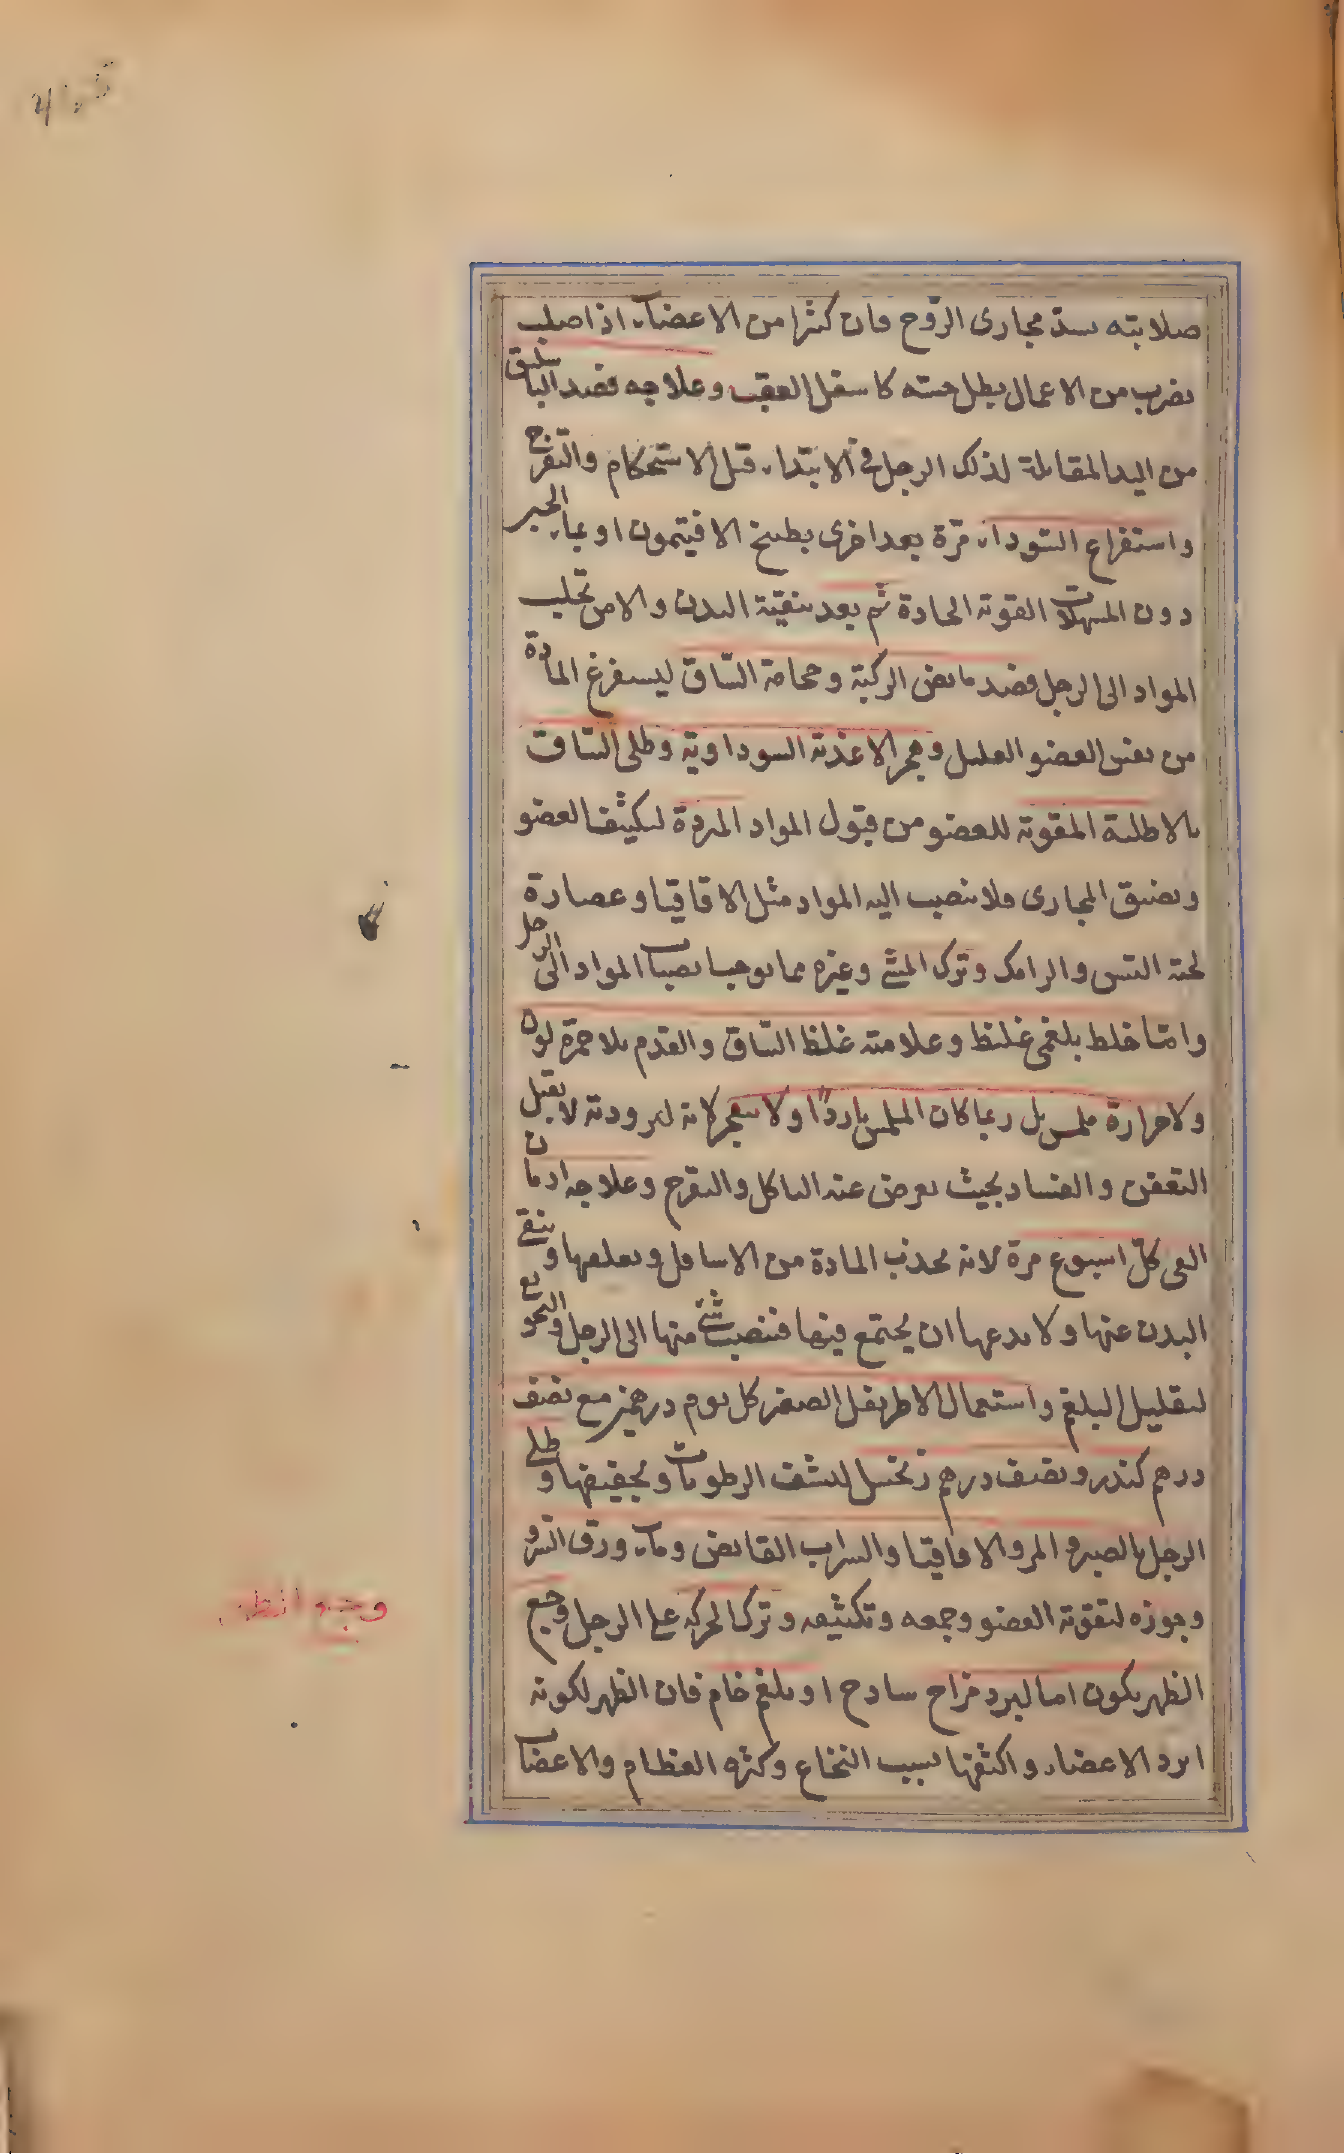 صلابته يسدّ مجارى الروح فان كثيرا من الاعضاء اذا صلب
بضرب من الاعمال يطل حسه كاسفل العقب وعلاجه فصد الباسليق
من اليد المقابلة لذلك الرجل فى الابتداء قبل الاستحكام والتقرح
واستفراغ السّوداء مرّة بعد اخرى بطبيخ الافتيمون او بماء الجبن
دون المسهلات القوية الحادة ثم بعد تنقية البدن والامن تحلب
المواد الى الرجل فصد مابض الركبة وحجامة السّاق ليستفرغ المادة
من نفس العضو العليل وهجر الاغذية السوداوية وطلى السّاق
بالاطلية المقوية للعضو من قبول المواد المردة ليكيثف العضو
ويضيق المجارى فلا ينصب اليه المواد مثل الاقاقيا وعصارة
لحية التيس والرامك وترك المشى وغيره مما يوجب انصباب المواد الى الرجل
وامّا خلط بلغمى غليظ وعلامته غلظ السّاق والقدم بلا حمرة لون
ولا حرارة ملمس بل ربما كان الملمس باردًا ولا ينفجر لانه لبرودته لا يقبل
التعفن والفساد بحيث يعرض عنه التاكل والتقرح وعلاجه ادمان
القى كلّ اسبوع مرة لانه يجذب المادة من الاسافل ويقلعها وينقى
البدن عنها ولا يدعها ان يجتمع فيها فتنصب شئ منها الى الرجل والتجويع
لتقليل البلغم واستعمال الاطريفل الصغير كل يوم درهمين مع نصف
درهم كندر ونصف درهم زنجبيل لينشف الرطوبات وتجفيفها وطلى
الرجل بالصبر والمر والاقاقيا والشراب القابض وماء ورق السّرو
وجوزه لتقوية العضو وجمعه وتكثيفه وترك الحركة على الرجل وجع
الظهر يكون اما لبرد مزاج ساذج او بلغم خام فان الظهر لكونه
ابرد الاعضاء واكثفها بسبب النخاع وكثرة العظام والاعصاب
وجع الظهر